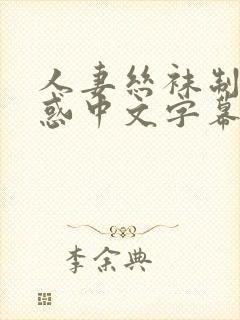 人妻絲袜制
惑中文字幕
李余典